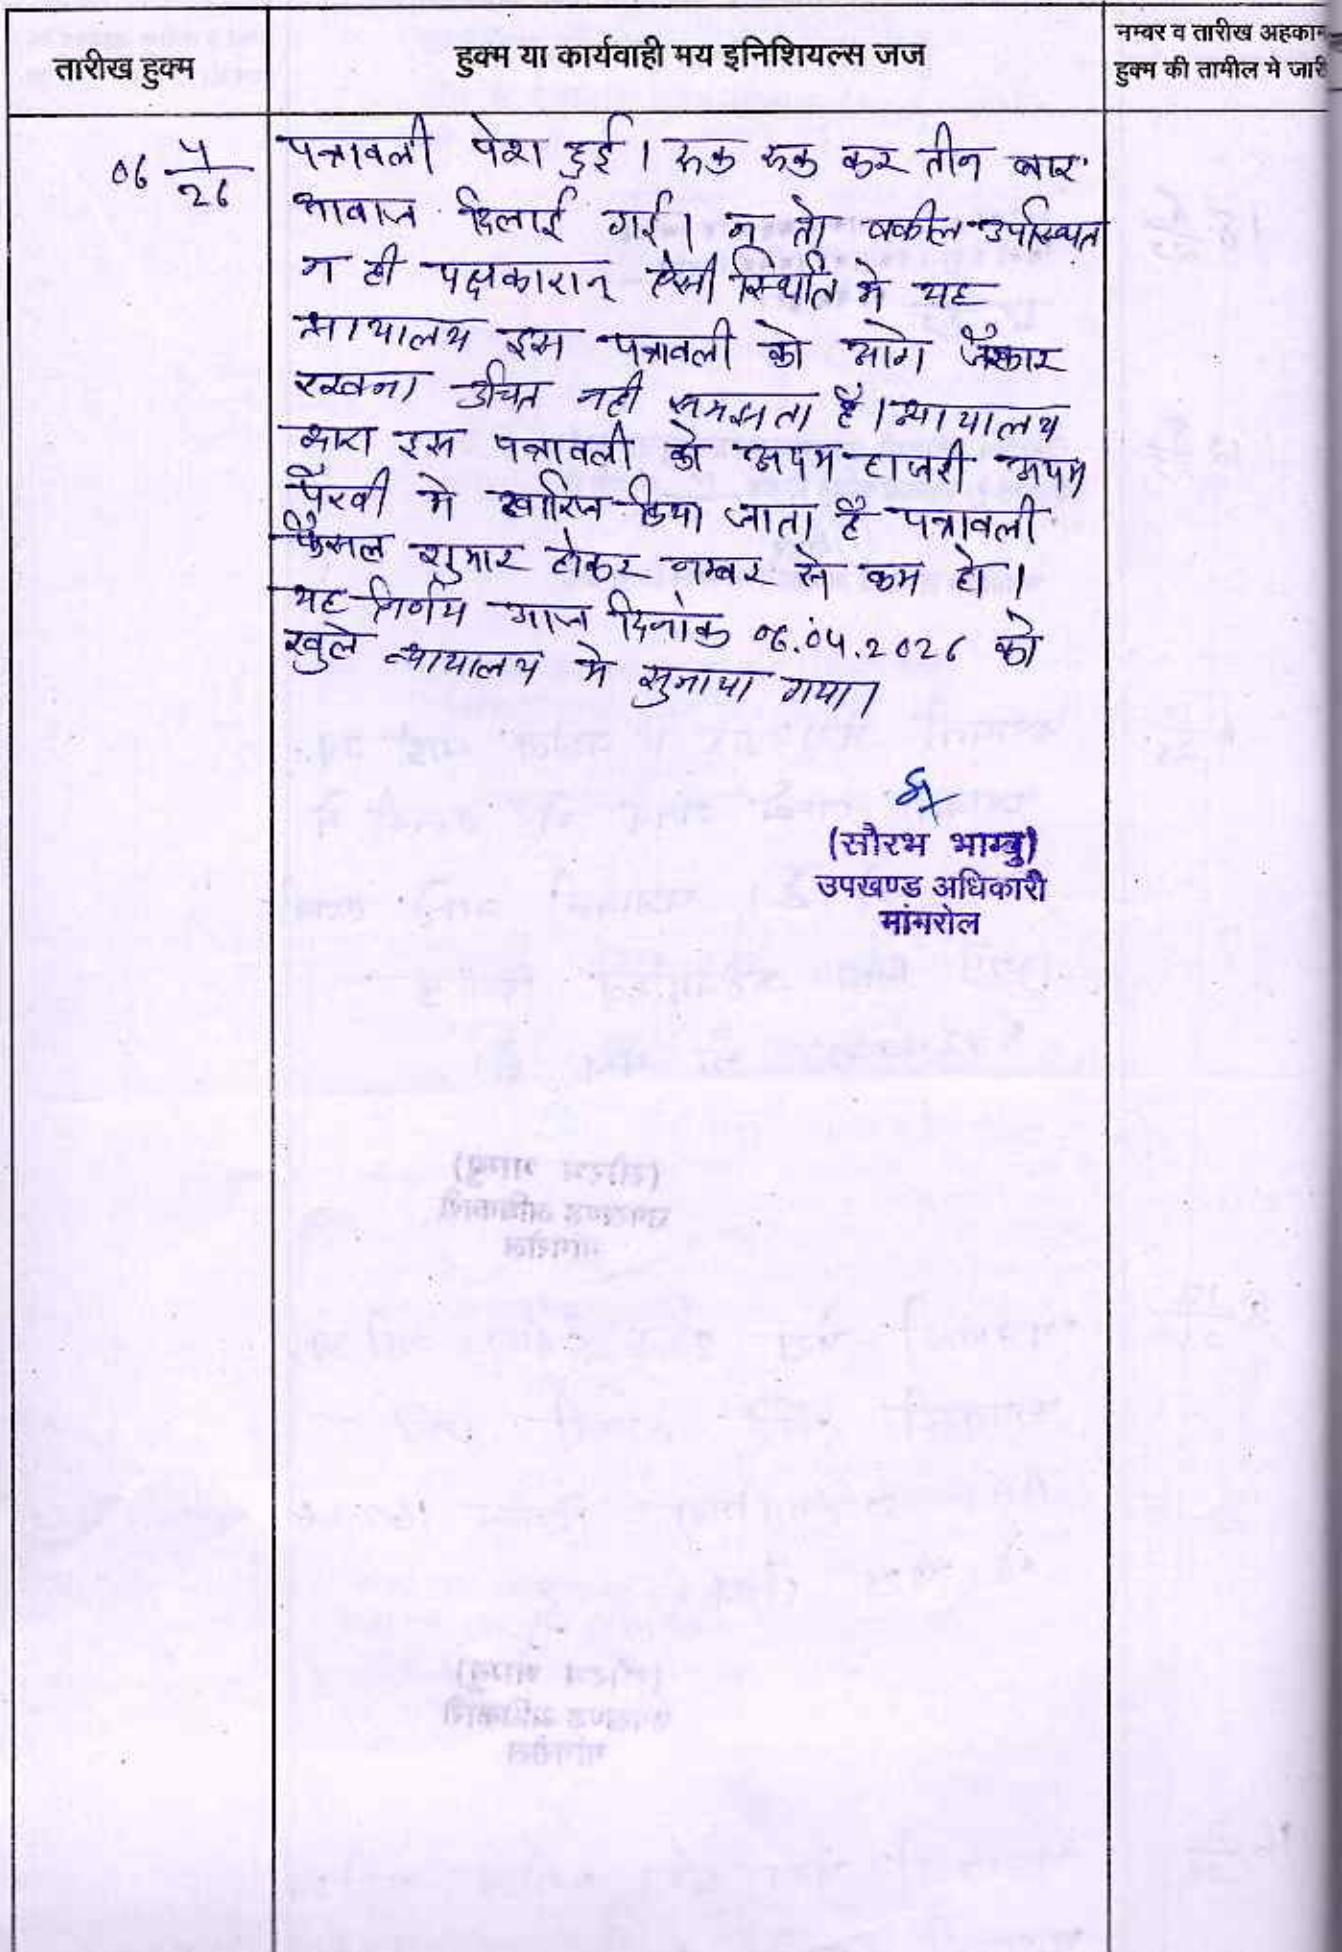 तारीख हुक्म
हुक्म या कार्यवाही मय इनिशियल्स जज
नम्बर व तारीख अहकाम
हुक्म की तामील मे जारी
06 4/26
पत्रावली पेश हुई। रुक रुक कर तीन बार
आवाज दिलाई गई। न तो वकील उपस्थित
न ही पक्षकारान् ऐसी स्थिति मे यह
न्यायालय इस पत्रावली को आगे
रखना उचित नही समझता है। न्यायालय
द्वारा इस पत्रावली को अदम हाजरी अदम
पैरवी मे खारिज किया जाता है पत्रावली
फैसल शुमार होकर नम्बर से कम हो।
यह निर्णय आज दिनांक 06.04.2026 को
खुले न्यायालय मे सुनाया गया।
(सौरभ भाम्बु)
उपखण्ड अधिकारी
मांगरोल